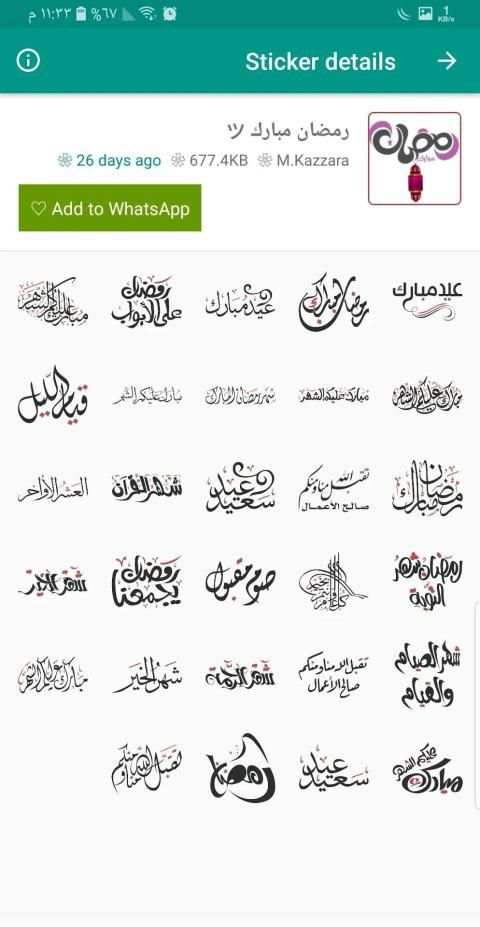 ١١:٣٣ م
%٦٧
1
KB/s
Sticker details
رمضان مبارك ツ
26 days ago 677.4KB M.Kazzara
♡ Add to WhatsApp
رمضان مبارك
عيد مبارك
رمضان مبارك
عيد مبارك
رمضان على الأبواب
مبارك عليكم الشهر
مبارك عليكم الشهر
مبارك عليكم الشهر
شهر رمضان المبارك
مبارك عليكم الشهر
قيام الليل
رمضان مبارك
تقبل الله منا ومنكم
صالح الأعمال
عيد سعيد
شهر القرآن
العشر الأواخر
رمضان شهر التوبة
كل عام وأنتم بخير
صوم مقبول
رمضان يجمعنا
شهر الخير
شهر الصيام والقيام
تقبل الله منا ومنكم
صالح الأعمال
شهر الرحمة
شهر الخير
مبارك عليكم الشهر
مبارك عليكم الشهر
عيد سعيد
رمضان
تقبل الله منا ومنكم